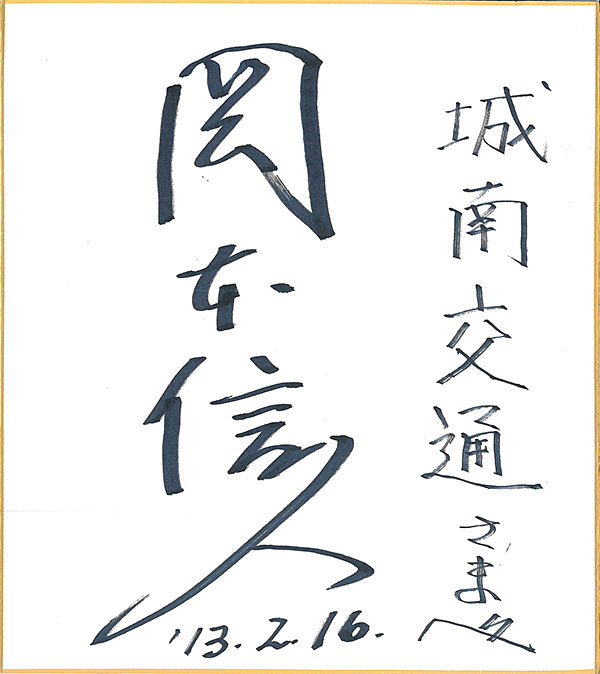 城南交通さま江
岡本信人
'13.2.16.